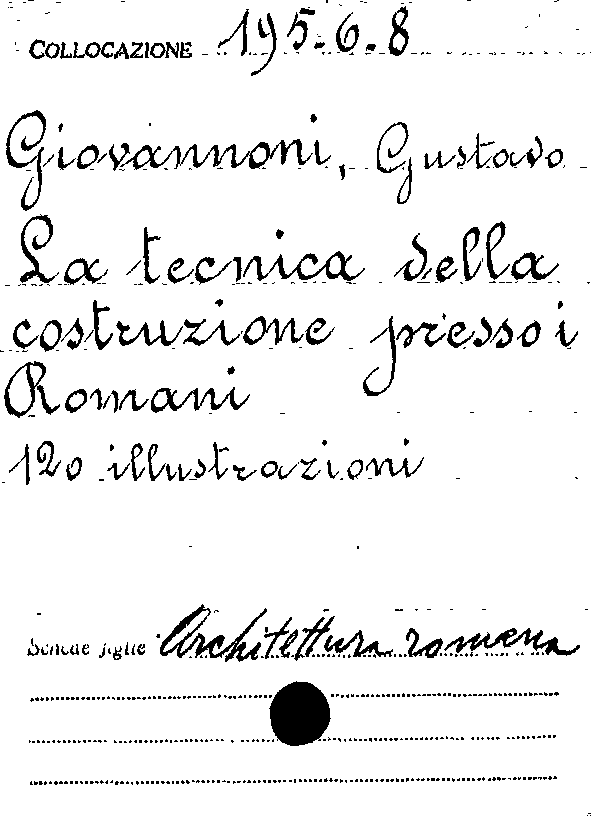 COLLOCAZIONE 195.6.8
Giovannoni, Gustavo
La tecnica della
costruzione presso i
Romani
120 illustrazioni
Schede figlie Architettura romana